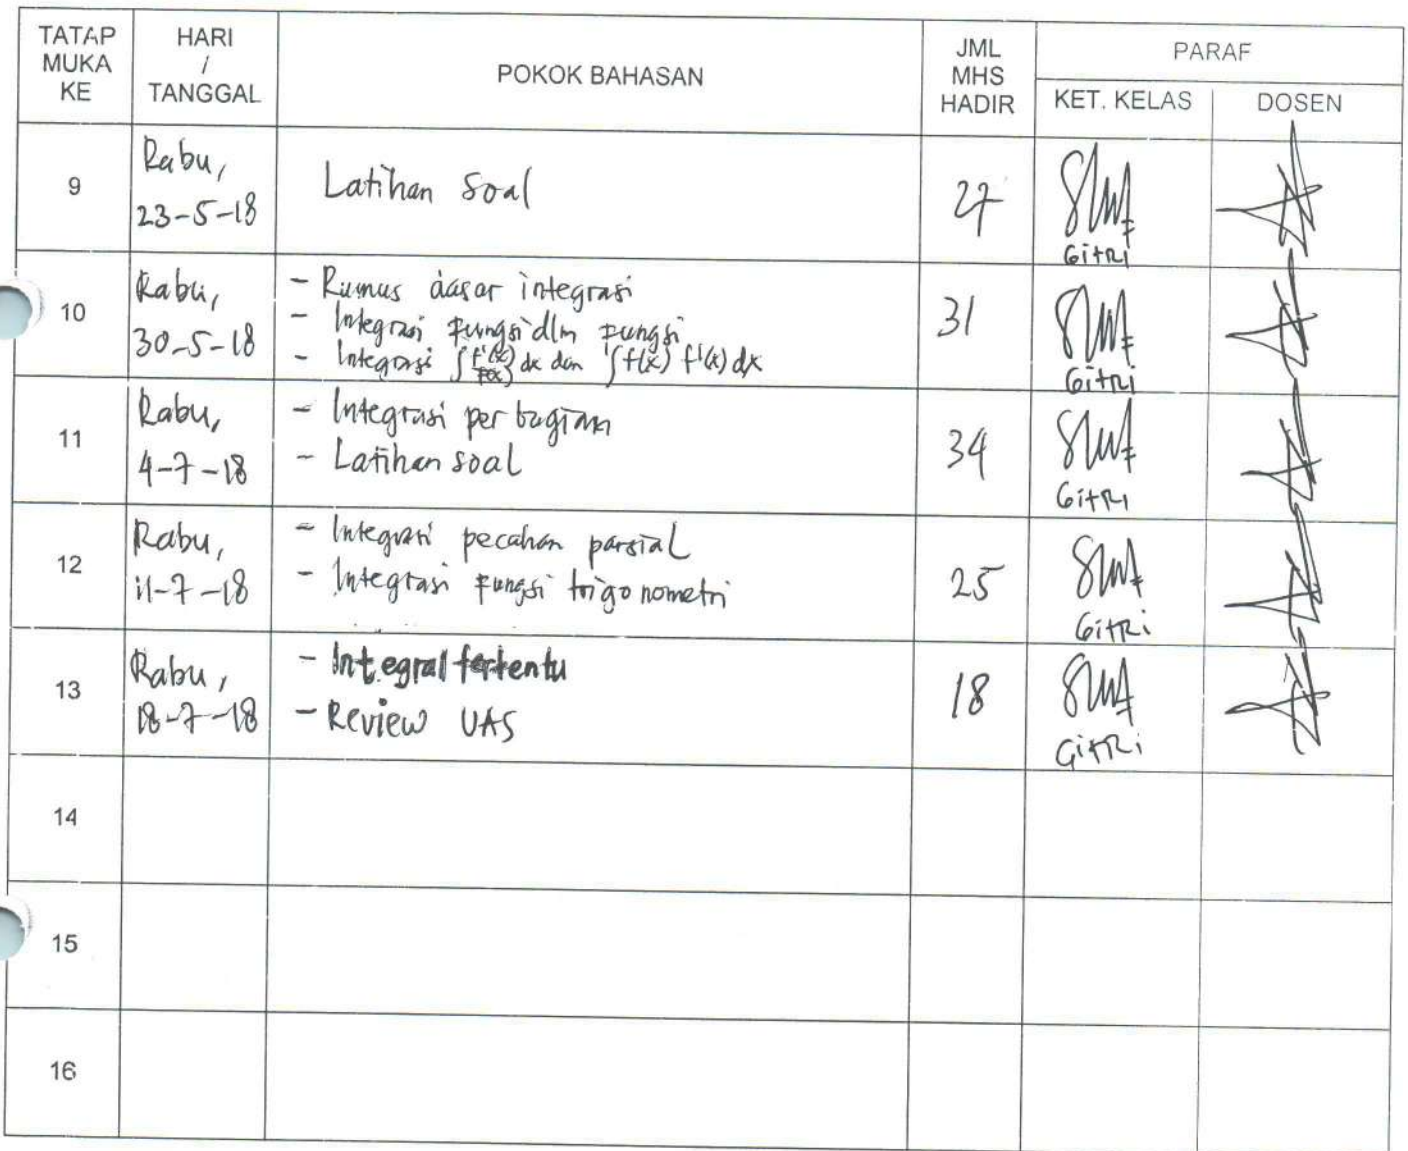 TATAP MUKA KE
HARI / TANGGAL
POKOK BAHASAN
JML MHS HADIR
PARAF
KET. KELAS
DOSEN
9
Rabu,
23-5-18
Latihan Soal
27
Gitri
10
Rabu,
30-5-18
- Rumus dasar integrasi
- Integrasi fungsi dlm fungsi
- Integrasi ∫ f'(x)/f(x) dx dan ∫ f(x) f'(x) dx
31
Gitri
11
Rabu,
4-7-18
- Integrasi per bagian
- Latihan soal
34
GitRi
12
Rabu,
11-7-18
- Integrasi pecahan parsial
- Integrasi fungsi trigonometri
25
GitRi
13
Rabu,
18-7-18
- Integral tertentu
- Review UAS
18
GitRi
14
15
16